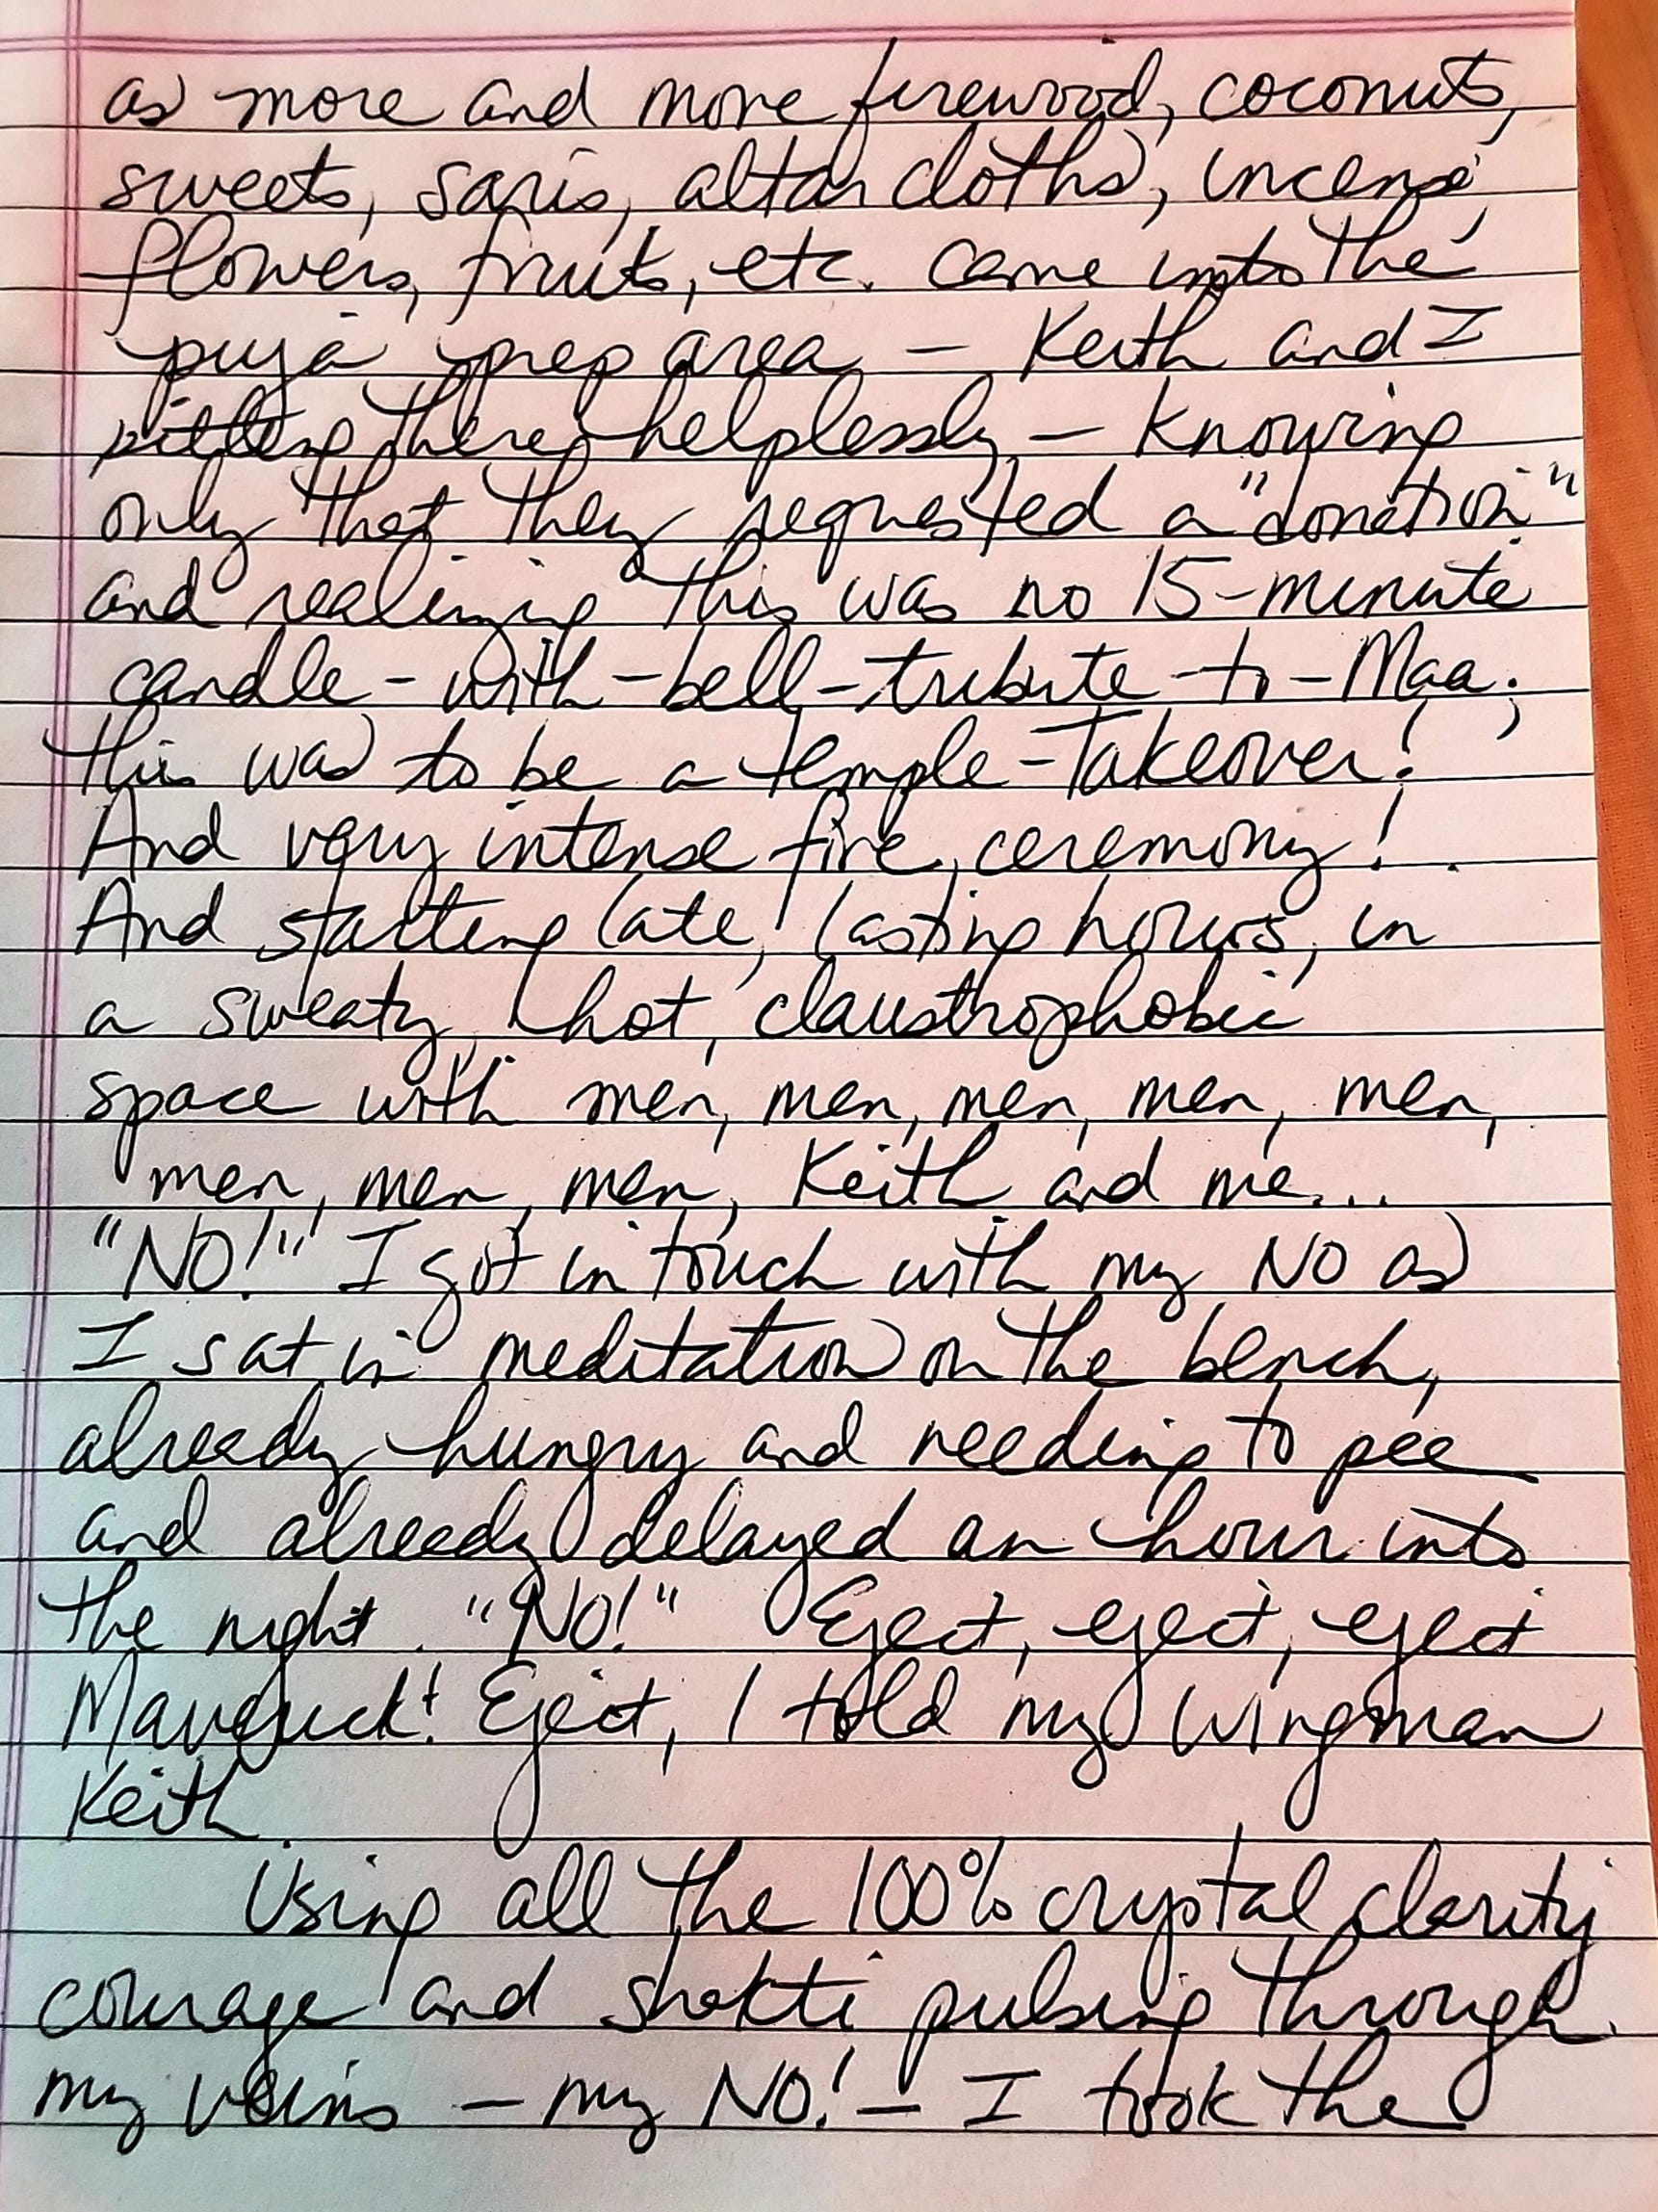 as more and more firewood, coconuts,
sweets, saris, altar cloths, incense,
flowers, fruits, etc. came into the
puja prep area — Keith and I
sitting there helplessly — knowing
only that they requested a "donation"
and realizing this was no 15-minute
candle-with-bell-tribute-to-Maa;
this was to be a temple-Takeover!
And very intense fire ceremony!
And starting late, lasting hours, in
a sweaty, hot, claustrophobic
space with men, men, men, men, men,
men, men, men, Keith and me...
"NO!" I got in touch with my NO as
I sat in meditation on the bench,
already hungry and needing to pee
and already delayed an hour into
the night. "NO!" Eject, eject, eject
Maverick! Eject, I told my wingman
Keith.
Using all the 100% crystal clarity
courage and shakti pulsing through
my veins — my NO! — I took the